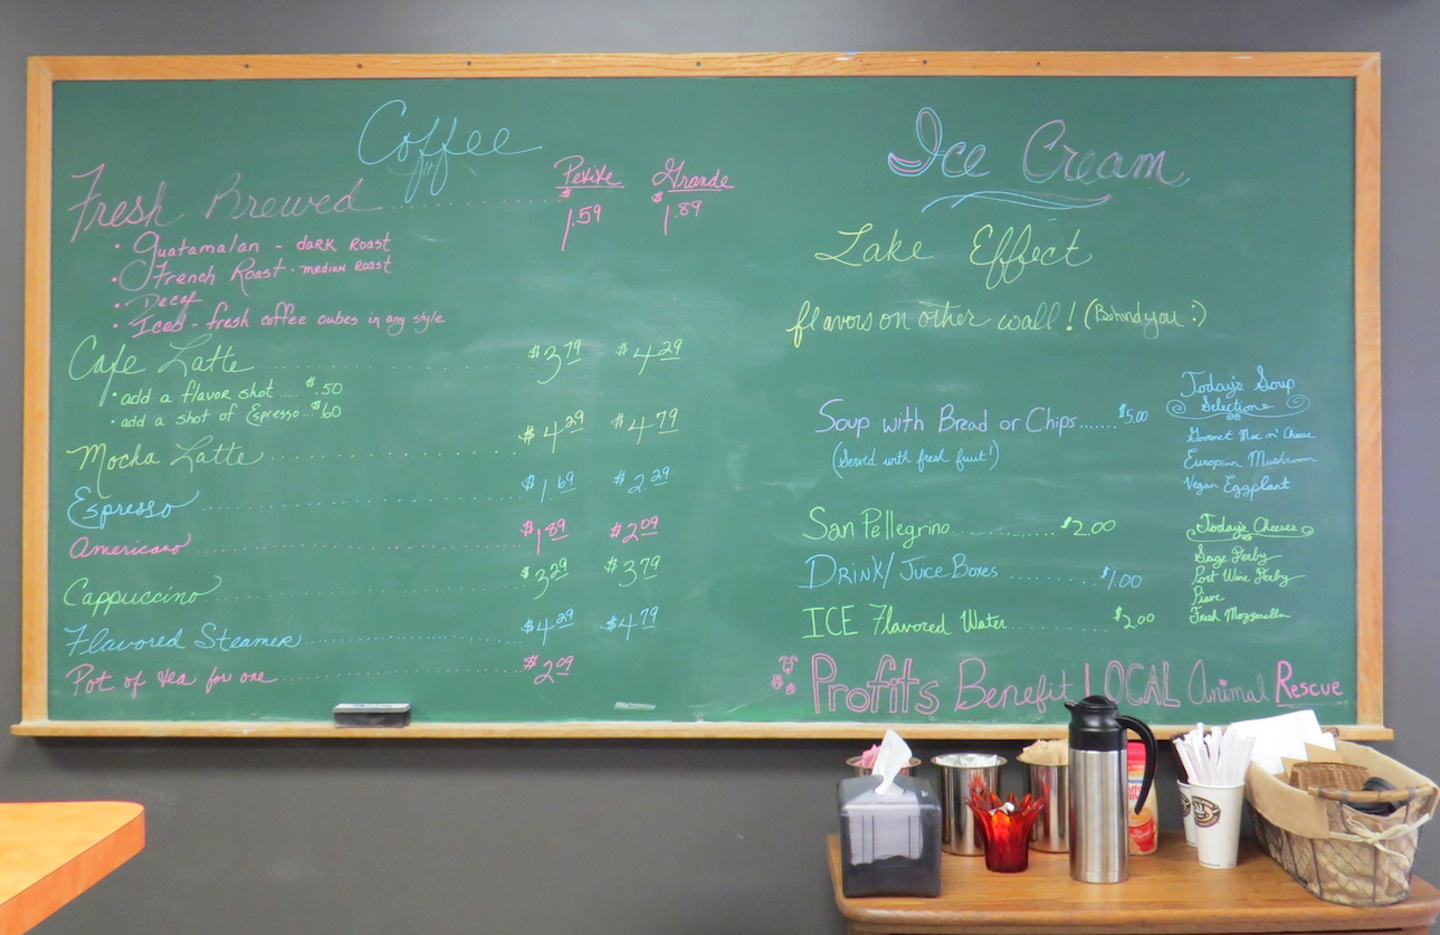 Coffee
Petite Grande
Fresh Brewed.......... $1.59 $1.89
• Guatamalan - dark Roast
• French Roast - medium Roast
• Decaf
• Iced - fresh coffee cubes in any style
Cafe Latte .......... $3.79 $4.29
• add a flavor shot ..... $.50
• add a shot of Espresso ... $.60
Mocha Latte .......... $4.29 $4.79
Espresso .......... $1.69 $2.29
Americano .......... $1.89 $2.09
Cappuccino .......... $3.29 $3.79
Flavored Steamer .......... $4.29 $4.79
Pot of tea for one .......... $2.09
Ice Cream
Lake Effect
flavors on other wall! (Behind you :)
Soup with Bread or Chips...... $5.00
(Served with fresh fruit!)
San Pellegrino .......... $2.00
Drink/Juice Boxes .......... $1.00
ICE Flavored Water .......... $2.00
Today's Soup
Selections
Gourmet Mac n' Cheese
European Mushroom
Vegan Eggplant
Today's Cheeses
Sage Derby
Port Wine Derby
Piave
Fresh Mozzarella
Profits Benefit LOCAL Animal Rescue